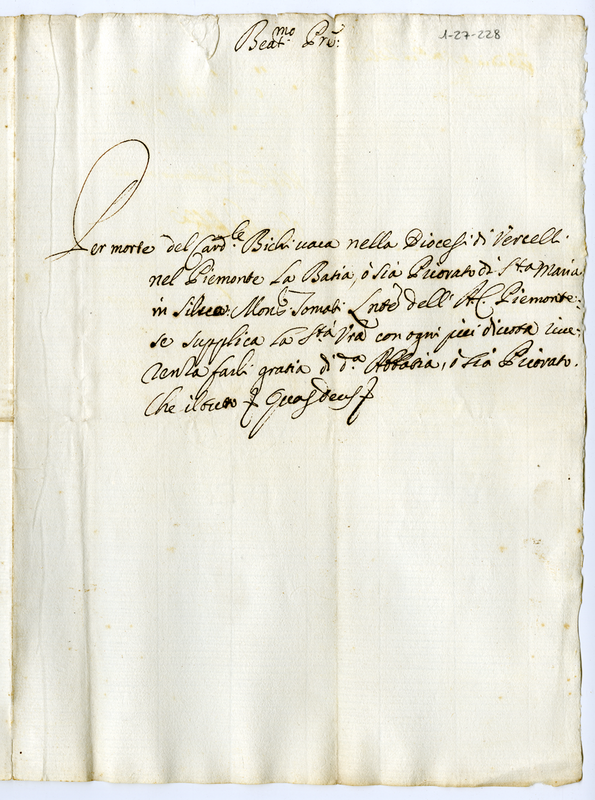 Beat.mo Pre:
1-27-228
Per morte del Card.le Bichi vaca nella Diocesi di Vercelli
nel Piemonte la Batia, ò sia Priorato di S.ta Maria
in Silva. Mons.r Tomati dell' AC. Piemonte-
se supplica la S.tà Vra con ogni più divota rive-
renza farli gratia di d.a Abbatia, ò sia Priorato.
Che il tutto Quas Deus